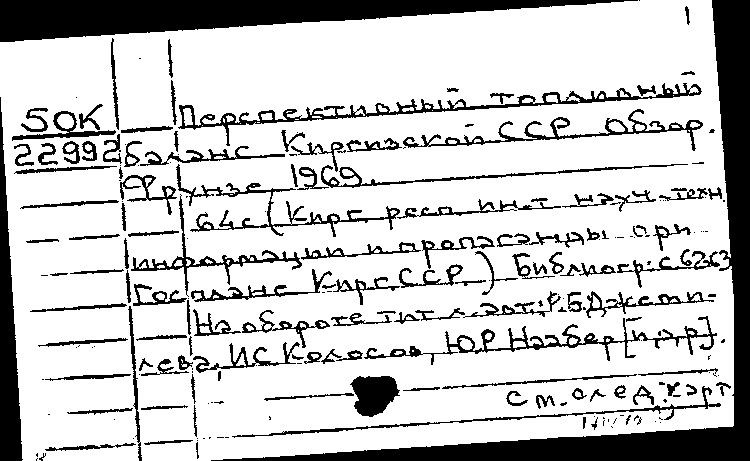 1
50К Перспективный топливный
22992 баланс Киргизской ССР Обзор.
Фрунзе, 1969.
64с (Кирг. респ. ин-т науч.-техн.
информации и пропаганды при
Госплане Кирг.ССР.) Библиогр.: с.62-63
На обороте тит. л. авт.: Р.Б.Джети-
лева, И.С Колосов, Ю.Р Наабер [и др].
См. след. карт